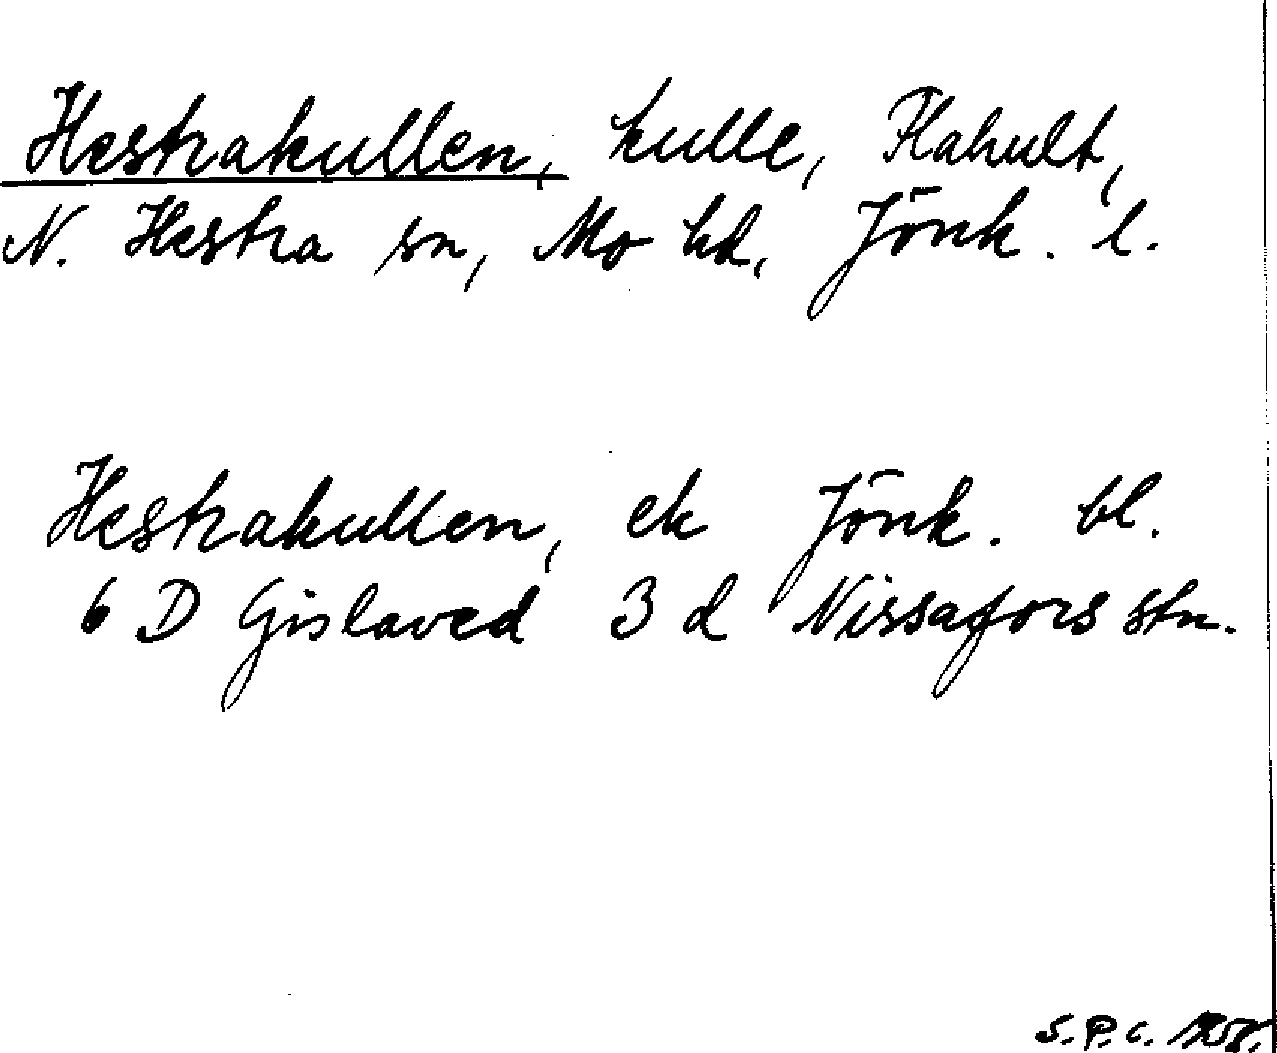 Hestrakullen, kulle, Flahult,
N. Hestra sn, Mo hd, Jönk. l.
Hestrakullen, ek Jönk. bl.
6 D Gislaved 3 d Nissafors stn.
S.P.C. 1958.